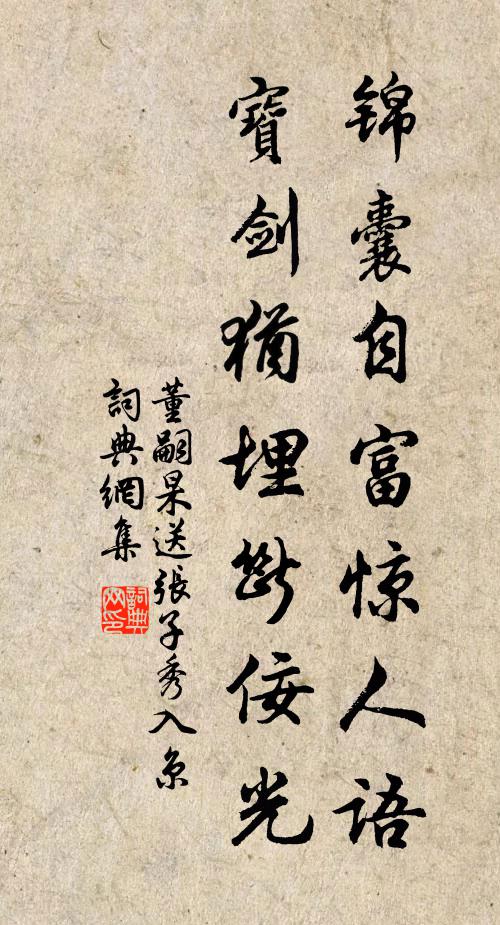 锦囊自富惊人语
寶剑猶埋断佞光
董嗣杲送張子秀入京
詞典網集
詞典網印